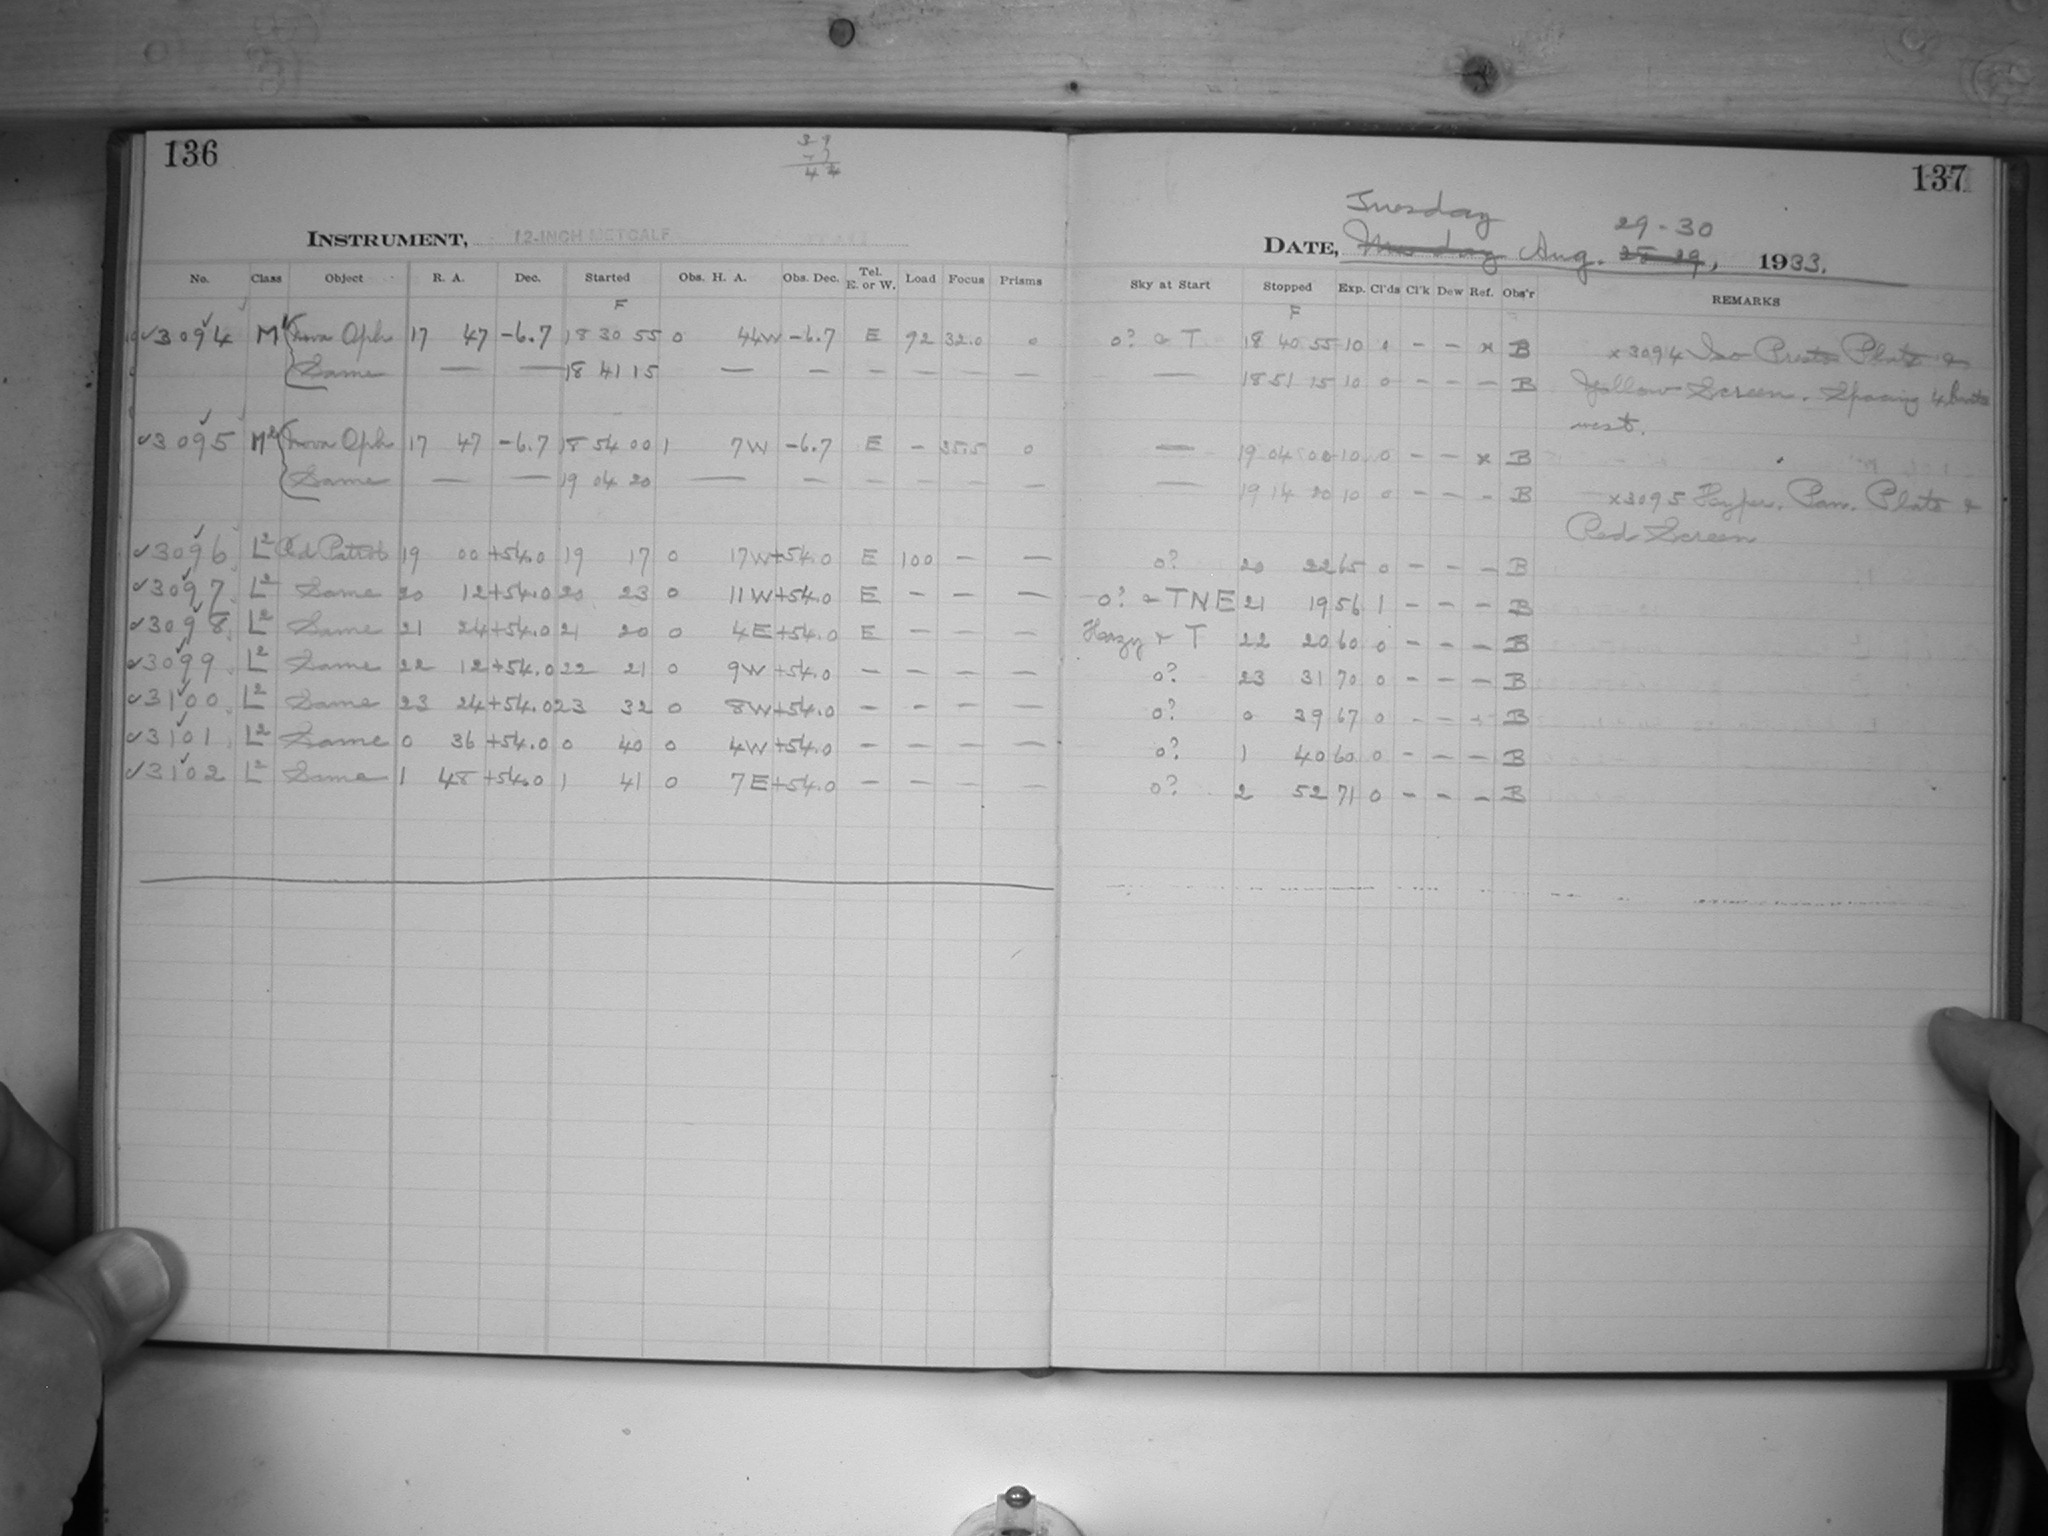 136
39
44
INSTRUMENT, 12-INCH METCALF
No. Class Object R. A. Dec. Started Obs. H. A. Obs. Dec. Tel. E. or W. Load Focus Prisms
F
3094 Nova Oph 17 47 -6.7 18 30 55 0 44W -6.7 E 92 32.0 0
Same — — 18 41 15 — — — — — —
3095 Nova Oph 17 47 -6.7 18 54 00 1 7W -6.7 E - 35.5 0
Same — — 19 04 20 — — — — — —
3096 L2 Patrol 19 00 +54.0 19 17 0 17W +54.0 E 100 — —
3097 L2 Same 20 12 +54.0 20 23 0 11W +54.0 E — — —
3098 L2 Same 21 24 +54.0 21 20 0 4E +54.0 E — — —
3099 L2 Same 22 12 +54.0 22 21 0 9W +54.0 — — — —
3100 L2 Same 23 24 +54.0 23 32 0 8W +54.0 — — — —
3101 L2 Same 0 36 +54.0 0 40 0 4W +54.0 — — — —
3102 L2 Same 1 48 +54.0 1 41 0 7E +54.0 — — — —
137
Tuesday
29-30
DATE, Monday Aug. 28 29, 1933.
Sky at Start Stopped Exp. Cl'ds Cl'k Dew Ref. Obs'r REMARKS
F
0? & T 18 40 55 10 - - x B x3094 Iso Plate &
— 18 51 15 10 0 - - - B Yellow Screen. Spacing 4
west.
— 19 04 00 10 0 - - x B
— 19 14 20 10 0 - - - B x3095 Hyper. Pan. Plate &
Red Screen
0? 20 22 65 0 - - - B
0? & TNE 21 19 56 1 - - - B
Hazy & T 22 20 60 0 - - - B
0? 23 31 70 0 - - - B
0? 0 39 67 0 - - - B
0? 1 40 60 0 - - - B
0? 2 52 71 0 - - - B